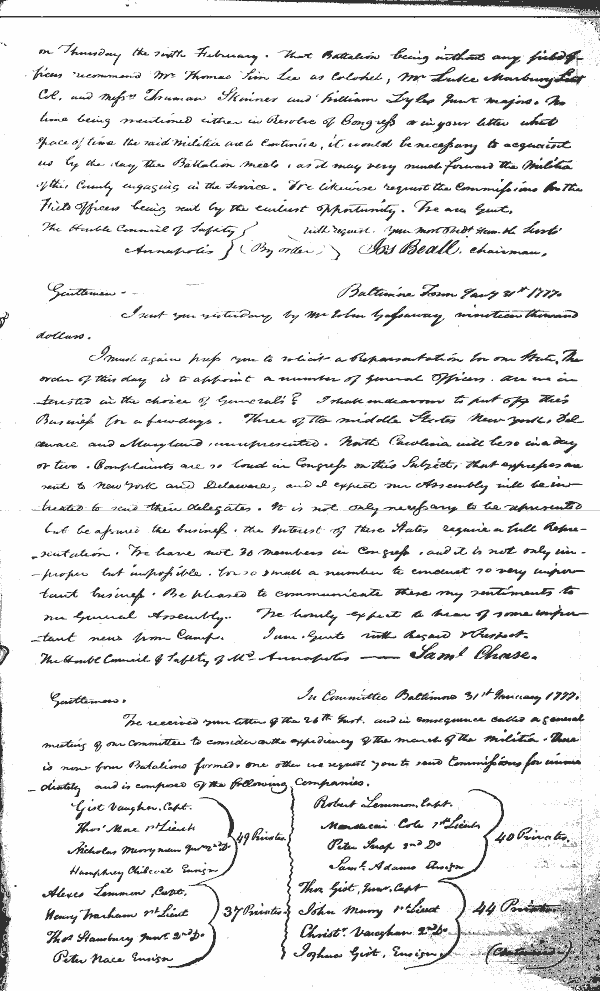 on Thursday the sixth February. That Battalion being without any field of-
ficers recommend Mr Thomas Sim Lee as Colonel, Mr Luke Marbury Lieut
Col. and Messrs Truman Skinner and William Lyles Junr. majors. No
time being mentioned either in Resolve of Congress or in your letter what
space of time the said Militia are to continue, it would be necessary to acquaint
us by the day the Battalion meets, as it may very much forward the Militia
of this County engaging in the Service. We likewise request the Commissions for the
Field Officers being sent by the earliest opportunity. We are Gent.
The Honble Council of Safety } with regard your most Obedt Hum. ble Servts
Annapolis } (By order) Jos Beall. chairman.
Gentlemen - Baltimore Town Jany 31st 1777.
I sent you yesterday by Mr John Gassaway, nineteen thousand
dollars.
I must again press you to solicit a Representation for our State, The
order of this day is to appoint a number of General Officers. are we in-
terested in the choice of Generals? I shall endeavour to put off this
Business for a few days. Three of the middle States New York, Del-
aware and Maryland, unrepresented. North Carolina will be so in a day
or two. Complaints are so loud in Congress on this Subject, that expresses are
sent to New York and Delaware, and I expect our Assembly will be in-
treated to send their delegates. It is not only necessary to be represented
but be assured the business, the Interest of these States require a full Repre-
sentation. We have not 20 members in Congress, and it is not only im-
proper but impossible for so small a number to conduct so very impor-
tant business. Be pleased to communicate these my sentiments to
our General Assembly. We hourly expect to hear of some impor-
tant news from Camp. I am Gents with Regard & Respect.
The Honble Council of Safety of Md. Annapolis — Saml Chase.
Gentlemen. In Committee Baltimore 31st January 1777.
We received your letter of the 26th Inst. and in consequence called a general
meeting of our committee to consider on the expediency of the march of the militia. There
is now four Batalions formed. one other we request you to send Commissions for imme
diately and is composed of the following Companies.
Gist Vaughan, Capt.
Thos Mae 1st Lieut
Nicholas Merryman Junr 2nd Do
Humphrey Chilcoat Ensign
49 Privates.
Robert Lemmon, Capt.
Mordecai Cole 1st Lieut
Peter 2nd Do
Saml. Adams Ensign
40 Privates.
Alexis Lemmon, Capt.
Henry 1st Lieut
Thos Stansbury Junr 2nd Do
Peter Nace Ensign
37 Privates.
Thos Gist, Junr. Capt
John Murry 1st Lieut
Christr. Vaughan 2nd Do
Joshua Gist, Ensign
44 Privates
(Continued)